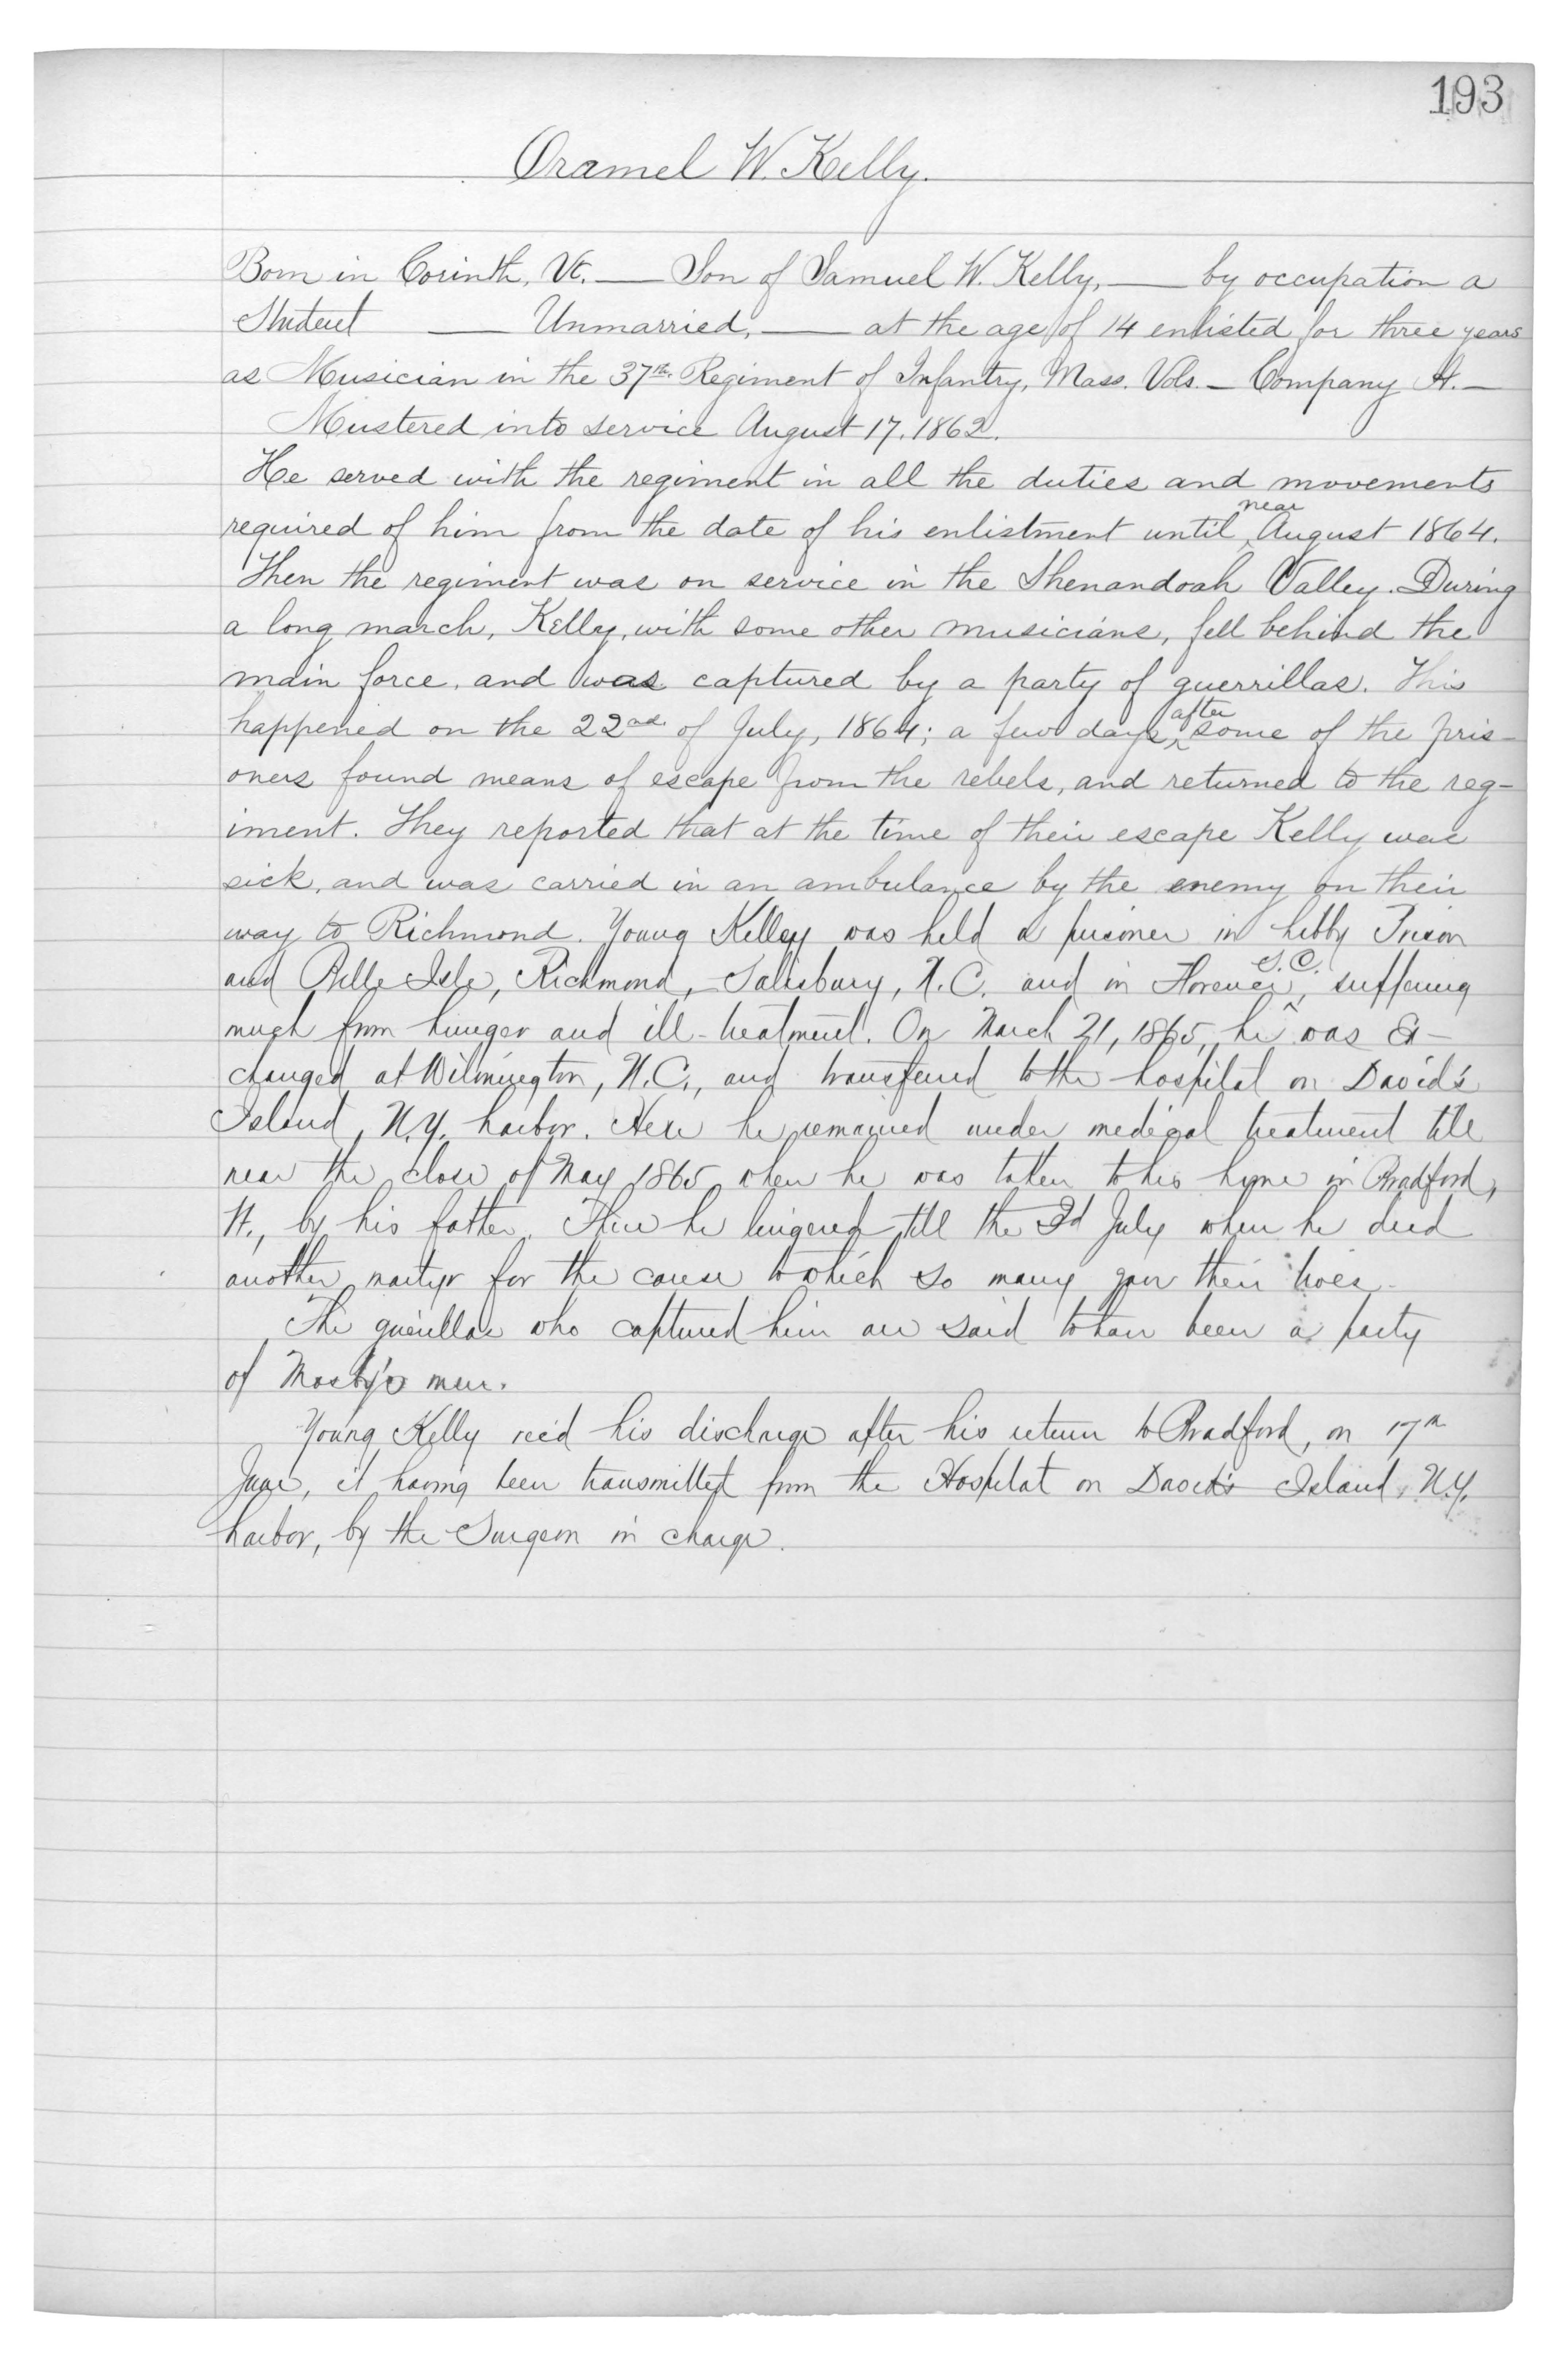 193
Oramel W. Kelly.
Born in Corinth, Vt. — Son of Samuel W. Kelly, — by occupation a
Student — Unmarried, — at the age of 14 enlisted for three years
as Musician in the 37th Regiment of Infantry, Mass. Vols. — Company H. —
Mustered into service August 17, 1862.
He served with the regiment in all the duties and movements
required of him from the date of his enlistment until near August 1864.
Then the regiment was on service in the Shenandoah Valley. During
a long march, Kelly, with some other musicians, fell behind the
main force, and was captured by a party of guerrillas. This
happened on the 22nd of July, 1864; a few days after some of the pris-
oners found means of escape from the rebels, and returned to the reg-
iment. They reported that at the time of their escape Kelly was
sick, and was carried in an ambulance by the enemy on their
way to Richmond. Young Kelley was held a prisoner in Libby Prison
and Belle Isle, Richmond, Salisbury, N.C. and in Florence, S.C. suffering
much from hunger and ill-treatment. On March 21, 1865, he was Ex-
changed at Wilmington, N.C., and transferred to the hospital on David's
Island, N.Y. harbor. Here he remained under medical treatment till
near the close of May 1865 when he was taken to his home in Bradford,
Vt., by his father. There he lingered till the 3d July when he died
another martyr for the cause to which so many gave their lives.
The guerillas who captured him are said to have been a party
of Mosby's men.
Young Kelly rec'd his discharge after his return to Bradford, on 17th
June, it having been transmitted from the Hospital on David's Island, N.Y.
harbor, by the Surgeon in charge.